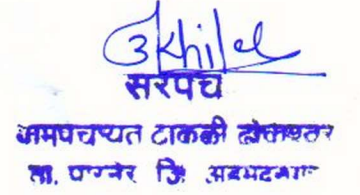 Akhil
सरपंच
टाकळी ढोकेश्वर
ता. पारनेर जि. अहमदनगर